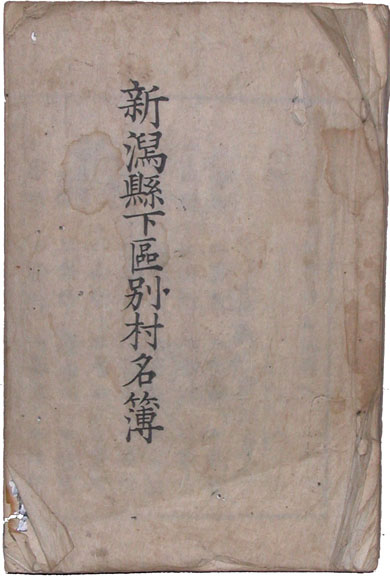 新潟縣下區别村名簿